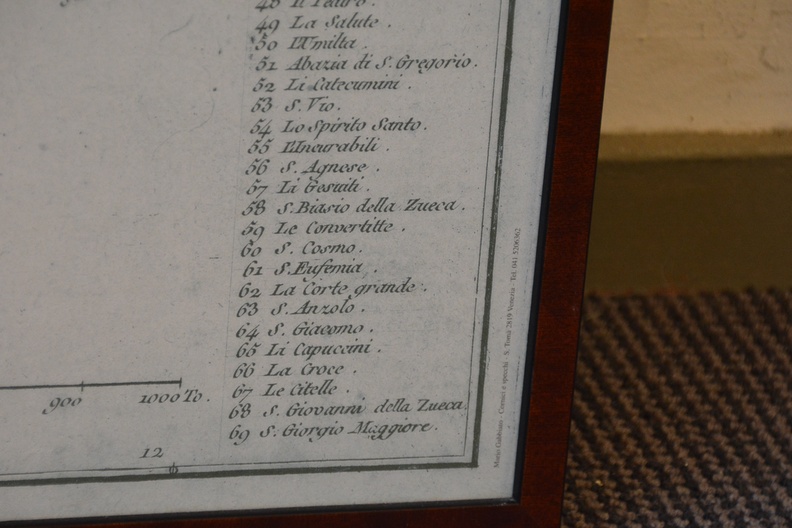 48 Il Teatro.
49 La Salute.
50 L'Umilta.
51 Abazia di S. Gregorio.
52 Li Catecumini.
53 S. Vio.
54 Lo Spirito Santo.
55 L'Incurabili.
56 S. Agnese.
57 Li Gesuiti.
58 S. Biasio della Zueca.
59 Le Convertitte.
60 S. Cosmo.
61 S. Eufemia.
62 La Corte grande.
63 S. Anzolo.
64 S. Giacomo.
65 Li Capuccini.
66 La Croce.
67 Le Citelle.
68 S. Giovanni della Zueca.
69 S. Giorgio Maggiore.
900 1000 To.
12
Cornici e specchi - S. Tomà 2819 Venezia - Tel. 041 5206362